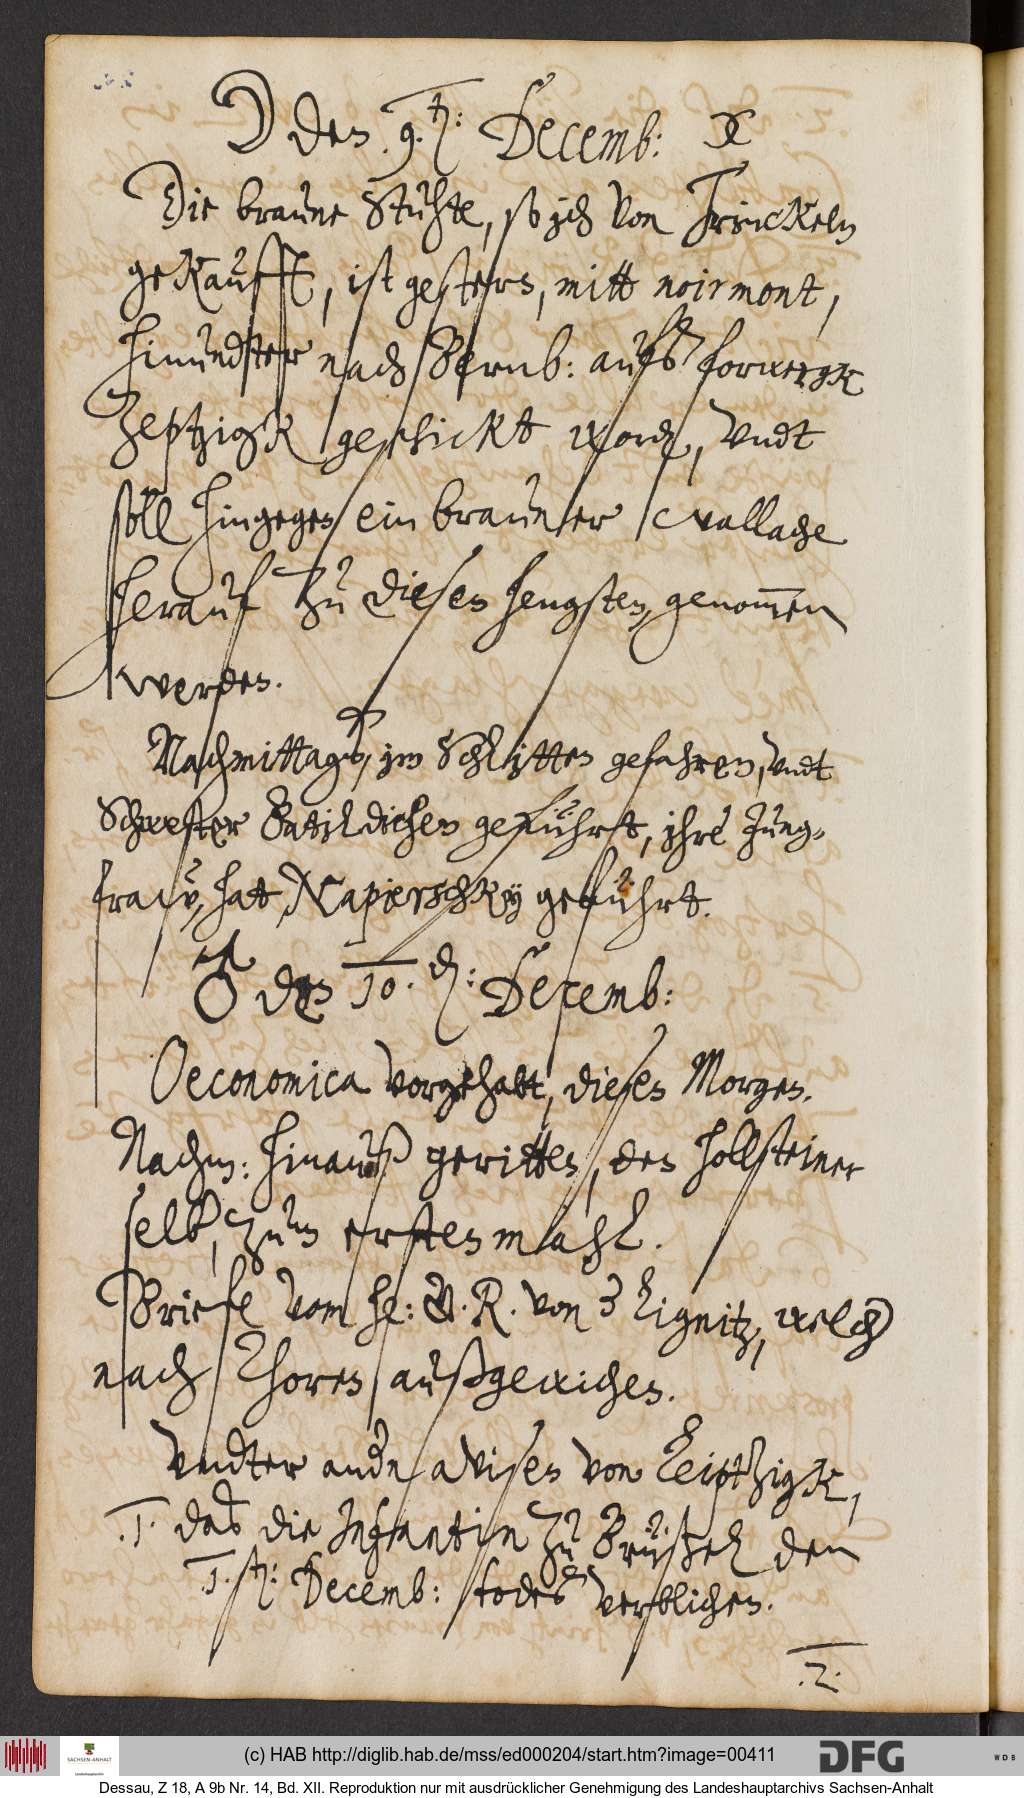 ☽ den 9.ten: Decemb: X
Die braune Stuhte, so ich von Frinckeln
gekaufft, ist gestern, mitt noirmont,
hinundter nach Bernb: aufs forwergk
Zeptzigk geschickt word, vndt
soll hingegen ein brauner wallache
herauf zu diesen hengsten, genom̅en
werden.
Nachmittags, im Schlitten gefahren, vndt
Schwester Batildichen geführt, ihre Jung-
fraw, hat, Rapierschky geführt.
♂ den 10. d: Decemb:
Oeconomica vorgehabt, dieses Morgen.
Nachm: hinauß geritten, den hollsteiner
selb, zum ersten mahl.
Briefe vom he: V. R. von 3 Lignitz, welch
nach Thoren außgewichen.
Vndter andn avisen von Leiptzigk,
.1. das die Infantin zu Brüßel den
.1. ten: Decemb: todes verblichen.
.2.
(c) HAB http://diglib.hab.de/mss/ed000204/start.htm?image=00411
SACHSEN-ANHALT
DFG
WDB
Dessau, Z 18, A 9b Nr. 14, Bd. XII. Reproduktion nur mit ausdrücklicher Genehmigung des Landeshauptarchivs Sachsen-Anhalt